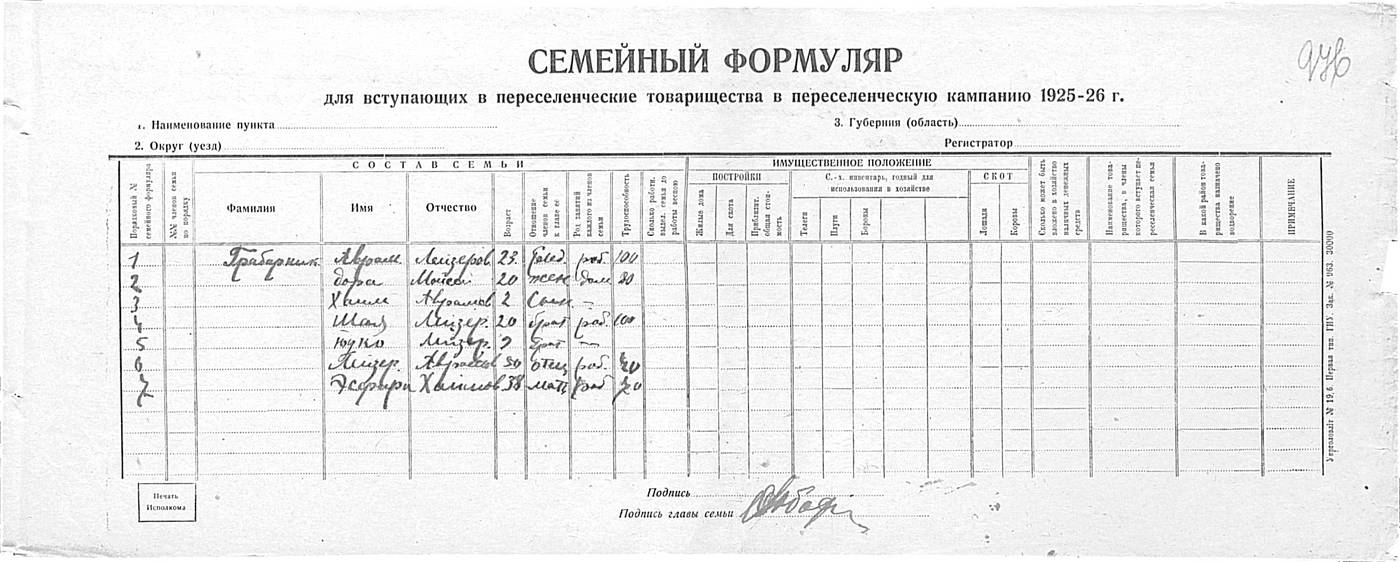 976
СЕМЕЙНЫЙ ФОРМУЛЯР
для вступающих в переселенческие товарищества в переселенческую кампанию 1925-26 г.
1. Наименование пункта
3. Губерния (область)
2. Округ (уезд)
Регистратор
СОСТАВ СЕМЬИ
ИМУЩЕСТВЕННОЕ ПОЛОЖЕНИЕ
Порядковый № семейного формуляра
№№ членов семьи по порядку
Фамилия
Имя
Отчество
Возраст
Отношение членов семьи к главе её
Род занятий каждого из членов семьи
Трудоспособность
Сколько работн. выдел. семья до работы весною
ПОСТРОЙКИ
Жилые дома
Для скота
Приблизит. общая стоимость
С.-х. инвентарь, годный для использования в хозяйстве
Телеги
Плуги
Бороны
СКОТ
Лошади
Коровы
Сколько может быть вложено в хозяйство наличных денежных средств
Наименование товарищества, в члены которого вступает переселенческая семья
В какой район товарищества назначено водворение
ПРИМЕЧАНИЕ
1 Грабарник Аврам Лейзеров 23 раб. 100
2 Дора Мойсей 20 жен дом 80
3 Хаим Аврамов 2 Сын —
4 Шая Лейзер. 20 брат раб. 100
5 Лейзер. брат —
6 Лейзер. Аврамов 50 отец раб.
7 Эсфирь Хаимов 38 мать раб
Печать Исполкома
Подпись
Подпись главы семьи
Укрголовліт № 19,6. Первая тип. ГПУ. Зак. № 963. 30000